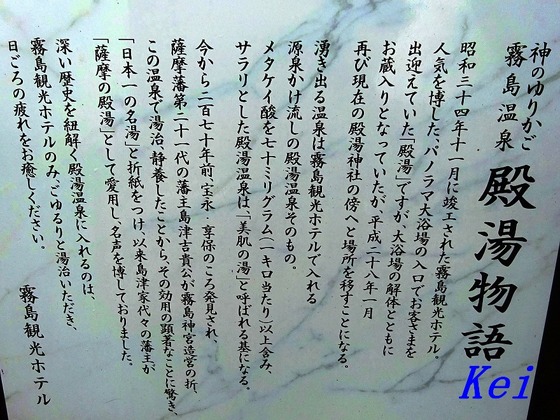 神のゆりかご
霧島温泉
殿湯物語
昭和三十四年十一月に竣工された霧島観光ホテル。
人気を博した、パノラマ大浴場の入口でお客さまを
出迎えていた「殿湯」ですが、大浴場の解体とともに
お蔵入りとなっていたが、平成二十八年一月
再び現在の殿湯神社の傍へと場所を移すことになる。
湧き出る温泉は霧島観光ホテルで入れる
源泉かけ流しの殿湯温泉そのもの。
メタケイ酸を七十ミリグラム(一キロ当たり)以上含み、
サラリとした殿湯温泉は「美肌の湯」と呼ばれる基になる。
今から二百七十年前、宝永・享保のころ発見され、
薩摩藩第二十一代の藩主島津吉貴公が霧島神宮造営の折、
この温泉で湯治、静養したことから、その効用の顕著なことに驚き、
「日本一の名湯」と折紙をつけ、以来島津家代々の藩主が
「薩摩の殿湯」として愛用し、名声を博しておりました。
深い歴史を紐解く殿湯温泉に入れるのは、
霧島観光ホテルのみ、どゆるりと湯治いただき、
日ごろの疲れをお癒しください。
霧島観光ホテル
Kei